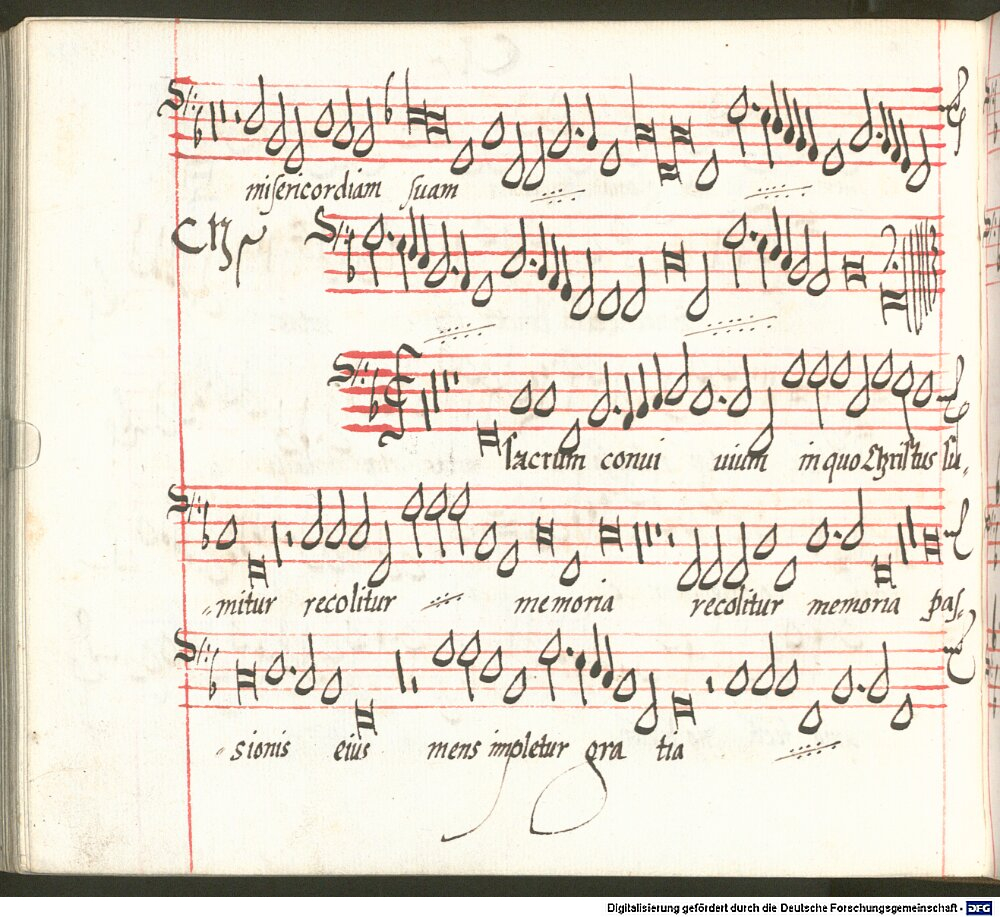 misericordiam suam
sacrum convi vium in quo Christus su-
-mitur recolitur memoria recolitur memoria pas-
-sionis eius mens impletur gra tia
Digitalisierung gefördert durch die Deutsche Forschungsgemeinschaft - DFG